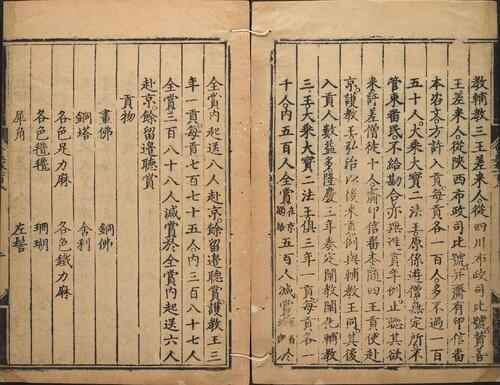 教輔教三王差來人從四川布政司比號贊善
王差來人從陝西布政司比號并齎有印信番
本咨文方許入貢每貢各一百人多不過一百
五十人大乘大寶二法王原係遊僧無定所不
管束番民不給勘合亦無進貢年例止聽其欲
來許差僧徒十人齎印信番本隨四王貢使赴
京護教王弘治以後來貢例與輔教王同其後
入貢人數益多隆慶三年奏定闡教闡化輔教
三王大乘大寶二法王俱三年一貢每貢各一
千人內五百人全賞在京給五百人減賞
全賞內起送八人赴京餘留邊聽賞護教王三
年一貢每貢七百七十五人內三百八十七人
全賞三百八十八人減賞於全賞內起送六人
赴京餘留邊聽賞
貢物
畫佛 銅佛
銅塔 舍利
各色足力麻 各色鐵力麻
各色氆氌 珊瑚
犀角 左髻